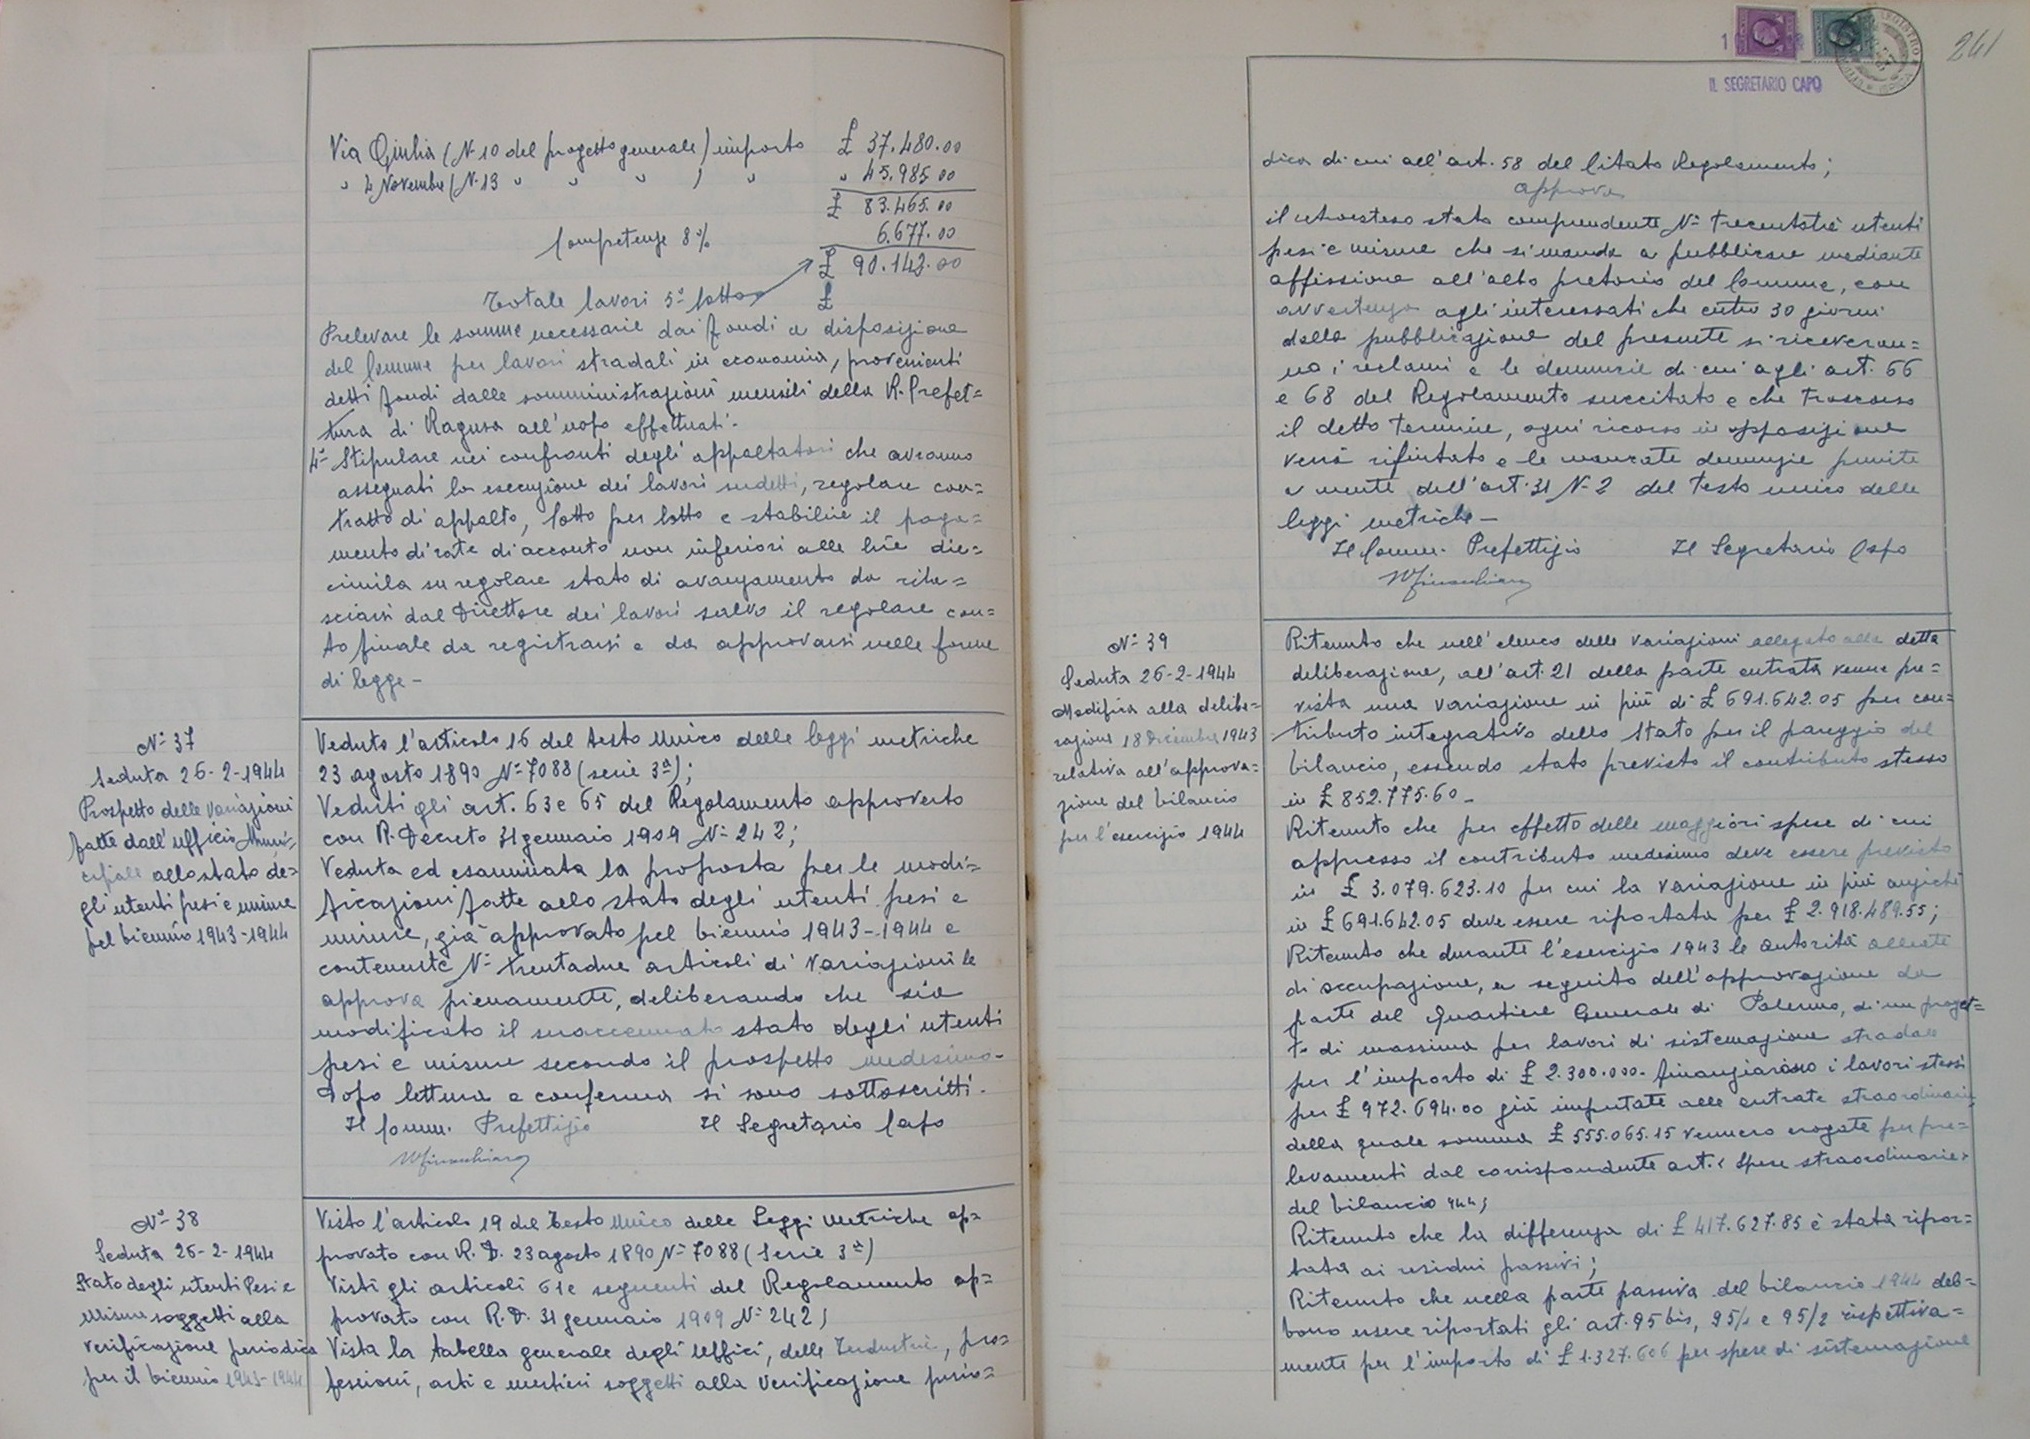 Via Giulia (N. 10 del progetto generale) importo £ 37.480.00
" 4 Novembre (N. 13 " " " ) " " 45.985.00
£ 83.465.00
Competenze 8% 6.677.00
£ 90.142.00
Totale lavori 5° lotto £
Prelevare le somme necessarie dai fondi a disposizione
del Comune per lavori stradali in economia, provenienti
detti fondi dalle somministrazioni mensili della R. Prefet=
tura di Ragusa all'uopo effettuati.
4° Stipulare nei confronti degli appaltatori che avranno
assegnati la esecuzione dei lavori sudetti, regolare con=
tratto di appalto, lotto per lotto e stabilire il paga=
mento di rate di acconto non inferiori alle lire die=
cimila su regolare stato di avanzamento da rila=
sciarsi dal Direttore dei lavori salvo il regolare con=
to finale da registrarsi e da approvarsi nelle forme
di legge –
N° 37
Seduta 26-2-1944
Prospetto delle variazioni
fatte dall'ufficio Muni=
cipale allo stato de=
gli utenti pesi e misure
pel biennio 1943-1944
Veduto l'articolo 16 del testo Unico delle leggi metriche
23 agosto 1890 N° 7088 (serie 3ª);
Veduti gli art. 63 e 65 del Regolamento approvato
con R. Decreto 31 gennaio 1909 N° 242;
Veduta ed esaminata la proposta per le modi=
ficazioni fatte allo stato degli utenti pesi e
misure, già approvato pel biennio 1943-1944 e
contenente N° trentadue articoli di variazioni le
approva pienamente, deliberando che sia
modificato il suaccennato stato degli utenti
pesi e misure secondo il prospetto medesimo –
Dopo lettura e conferma si sono sottoscritti.
Il Comm. Prefettizio Il Segretario Capo
N° 38
Seduta 26-2-1944
Stato degli utenti Pesi e
Misure soggetti alla
verificazione periodica
per il biennio 1943-1944
Visto l'articolo 19 del Testo Unico delle Leggi metriche ap=
provato con R. D. 23 agosto 1890 N° 7088 (Serie 3ª)
Visti gli articoli 61 e seguenti del Regolamento ap=
provato con R. D. 31 gennaio 1909 N° 242;
Vista la tabella generale degli Uffici, delle Industrie, pro=
fessioni, arti e mestieri soggetti alla verificazione perio=
241
IL SEGRETARIO CAPO
dica di cui all'art. 58 del Citato Regolamento;
approva
il retroesteso stato comprendente N° trecentotré utenti
pesi e misure che si manda a pubblicare mediante
affissione all'albo pretorio del Comune, con
avvertenza agli interessati che entro 30 giorni
dalla pubblicazione del presente si riceveran=
no i reclami e le denuncie di cui agli art. 66
e 68 del Regolamento succitato e che trascorso
il detto termine, ogni ricorso in opposizione
verrà rifiutato e le mancate denunzie punite
a mente dell'art. 31 N. 2 del testo unico delle
leggi metriche –
Il Comm. Prefettizio Il Segretario Capo
N° 39
Seduta 26-2-1944
Modifica alla delibe=
razione 18 Dicembre 1943
relativa all'approva=
zione del bilancio
per l'esercizio 1944
Ritenuto che nell'elenco delle variazioni allegato alla detta
deliberazione, all'art. 21 della parte entrata venne pre=
vista una variazione in più di £ 691.642.05 per con=
tributo integrativo dello Stato per il pareggio del
bilancio, essendo stato previsto il contributo stesso
in £ 852.775.60 –
Ritenuto che per effetto delle maggiori spese di cui
appresso il contributo medesimo deve essere previsto
in £ 3.079.623.10 per cui la variazione in più anziché
in £ 691.642.05 deve essere riportata per £ 2.918.489.55;
Ritenuto che durante l'esercizio 1943 le autorità alleate
di occupazione, a seguito dell'approvazione da
parte del Quartiere Generale di Palermo, di un proget=
to di massima per lavori di sistemazione stradale
per l'importo di £ 2.300.000 – finanziarono i lavori stessi
per £ 972.694.00 già imputate alle entrate straordinarie,
della quale somma £ 555.065.15 vennero erogate per pre=
levamenti dal corrispondente art. "Spese straordinarie"
del bilancio 944;
Ritenuto che la differenza di £ 417.627.85 è stata ripor=
tata ai residui passivi;
Ritenuto che nella parte passiva del bilancio 1944 deb=
bono essere riportati gli art. 95 bis, 95/1 e 95/2 rispettiva=
mente per l'importo di £ 1.327.606 per spese di sistemazione